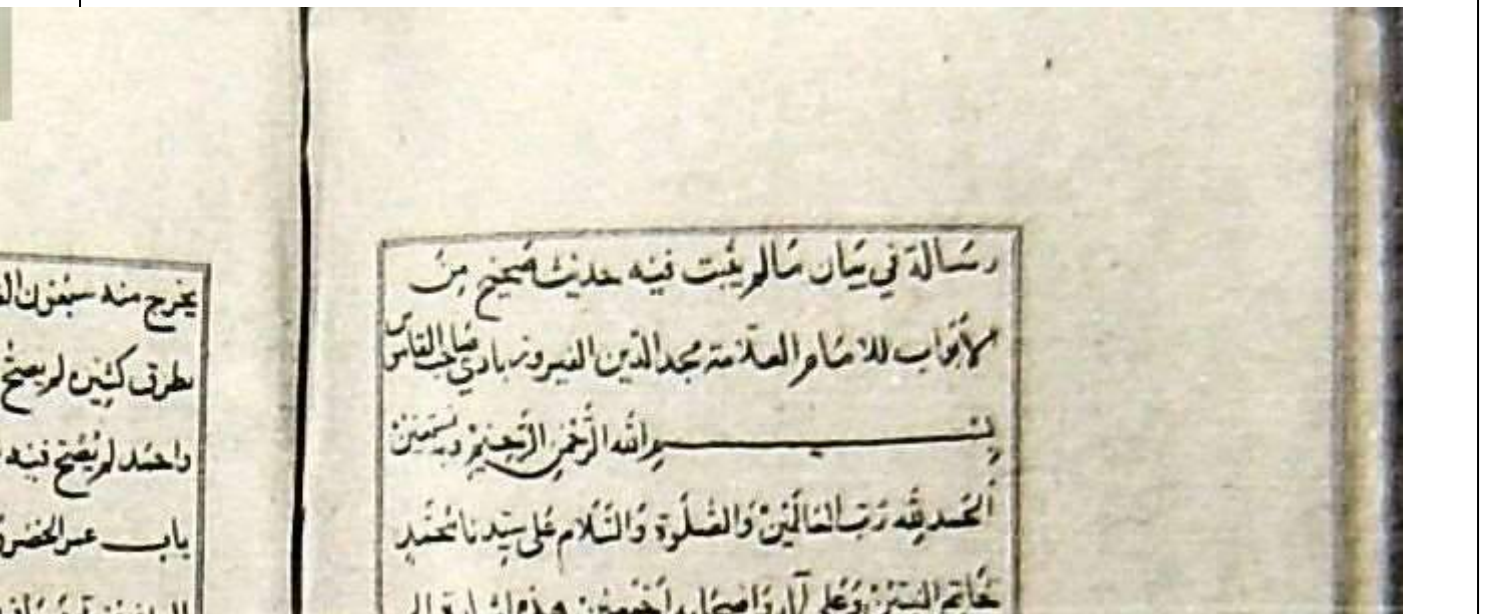 رسالة في بيان مالم يثبت فيه حديث صحيح من
الأبواب للامام العلامة مجد الدين الفيروزبادي صاحب القاموس
بسم الله الرحمن الرحيم وبه نستعين
الحمد لله رب العالمين والصلوة والسلام على سيدنا محمد
خاتم النبيين وعلى آله واصحابه اجمعين
يخرج منه سبعون
بطرق كثيره لم يصح
واحمد لم يصح فيه
باب عمر الخضر